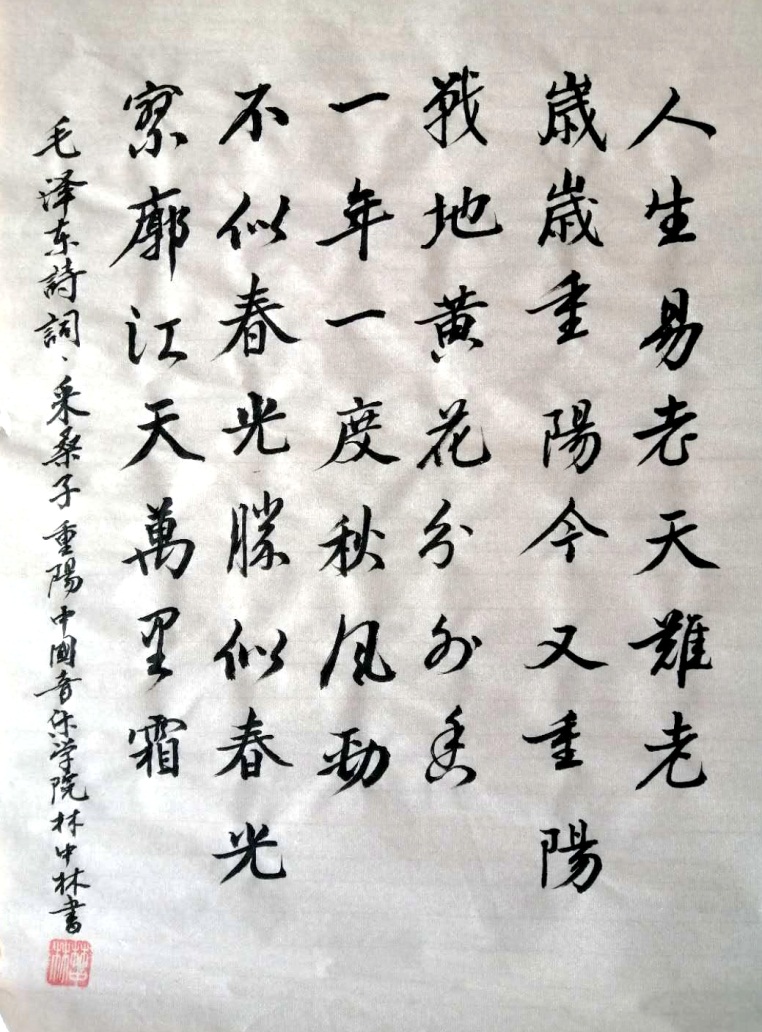 人生易老天難老
歲歲重陽今又重陽
戰地黃花分外香
一年一度秋風勁
不似春光勝似春光
寥廓江天萬里霜
毛泽东詩詞、采桑子·重陽中國音乐学院林中林書